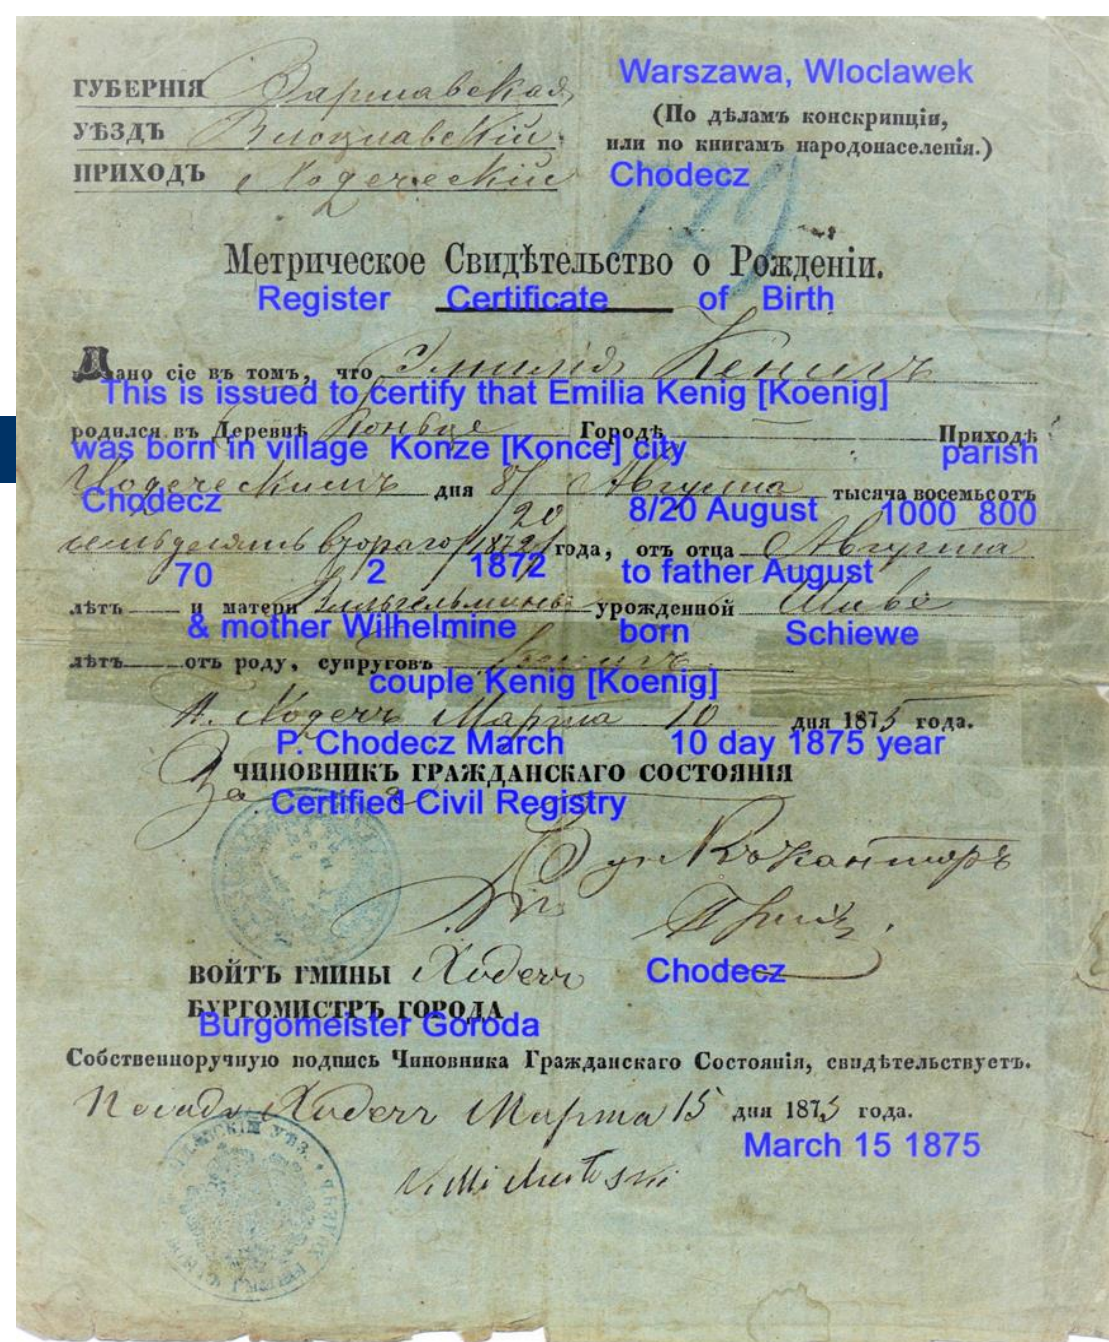 ГУБЕРНІЯ Варшавская
Warszawa, Wloclawek
(По дѣламъ конскрипціи,
УѢЗДЪ Влоцлавскій
или по книгамъ народонаселенія.)
ПРИХОДЪ Ходеческій
Chodecz
129
Метрическое Свидѣтельство о Рожденіи.
Register Certificate of Birth
Дано сіе въ томъ, что Эмилія Кенигъ
This is issued to certify that Emilia Kenig [Koenig]
родился въ Деревнѣ Городѣ — Приходѣ
was born in village Konze [Konce] city parish
Ходеческимъ дня 8/20 Августа тысяча восемьсотъ
Chodecz 8/20 August 1000 800
семьдесятъ втораго /1872/ года, отъ отца Августа
70 2 1872 to father August
лѣтъ — и матери Вильгельмины урожденной Шиве
& mother Wilhelmine born Schiewe
лѣтъ — отъ роду, супруговъ Кенигъ
couple Kenig [Koenig]
П. Ходечъ Марта 10 дня 1875 года.
P. Chodecz March 10 day 1875 year
За ЧИНОВНИКЪ ГРАЖДАНСКАГО СОСТОЯНІЯ
Certified Civil Registry
ВОЙТЪ ГМИНЫ Ходечъ
Chodecz
БУРГОМИСТРЪ ГОРОДА
Burgomeister Goroda
Собственноручную подпись Чиновника Гражданскаго Состоянія, свидѣтельствуетъ.
Посадъ Ходечъ Марта 15 дня 1875 года.
March 15 1875